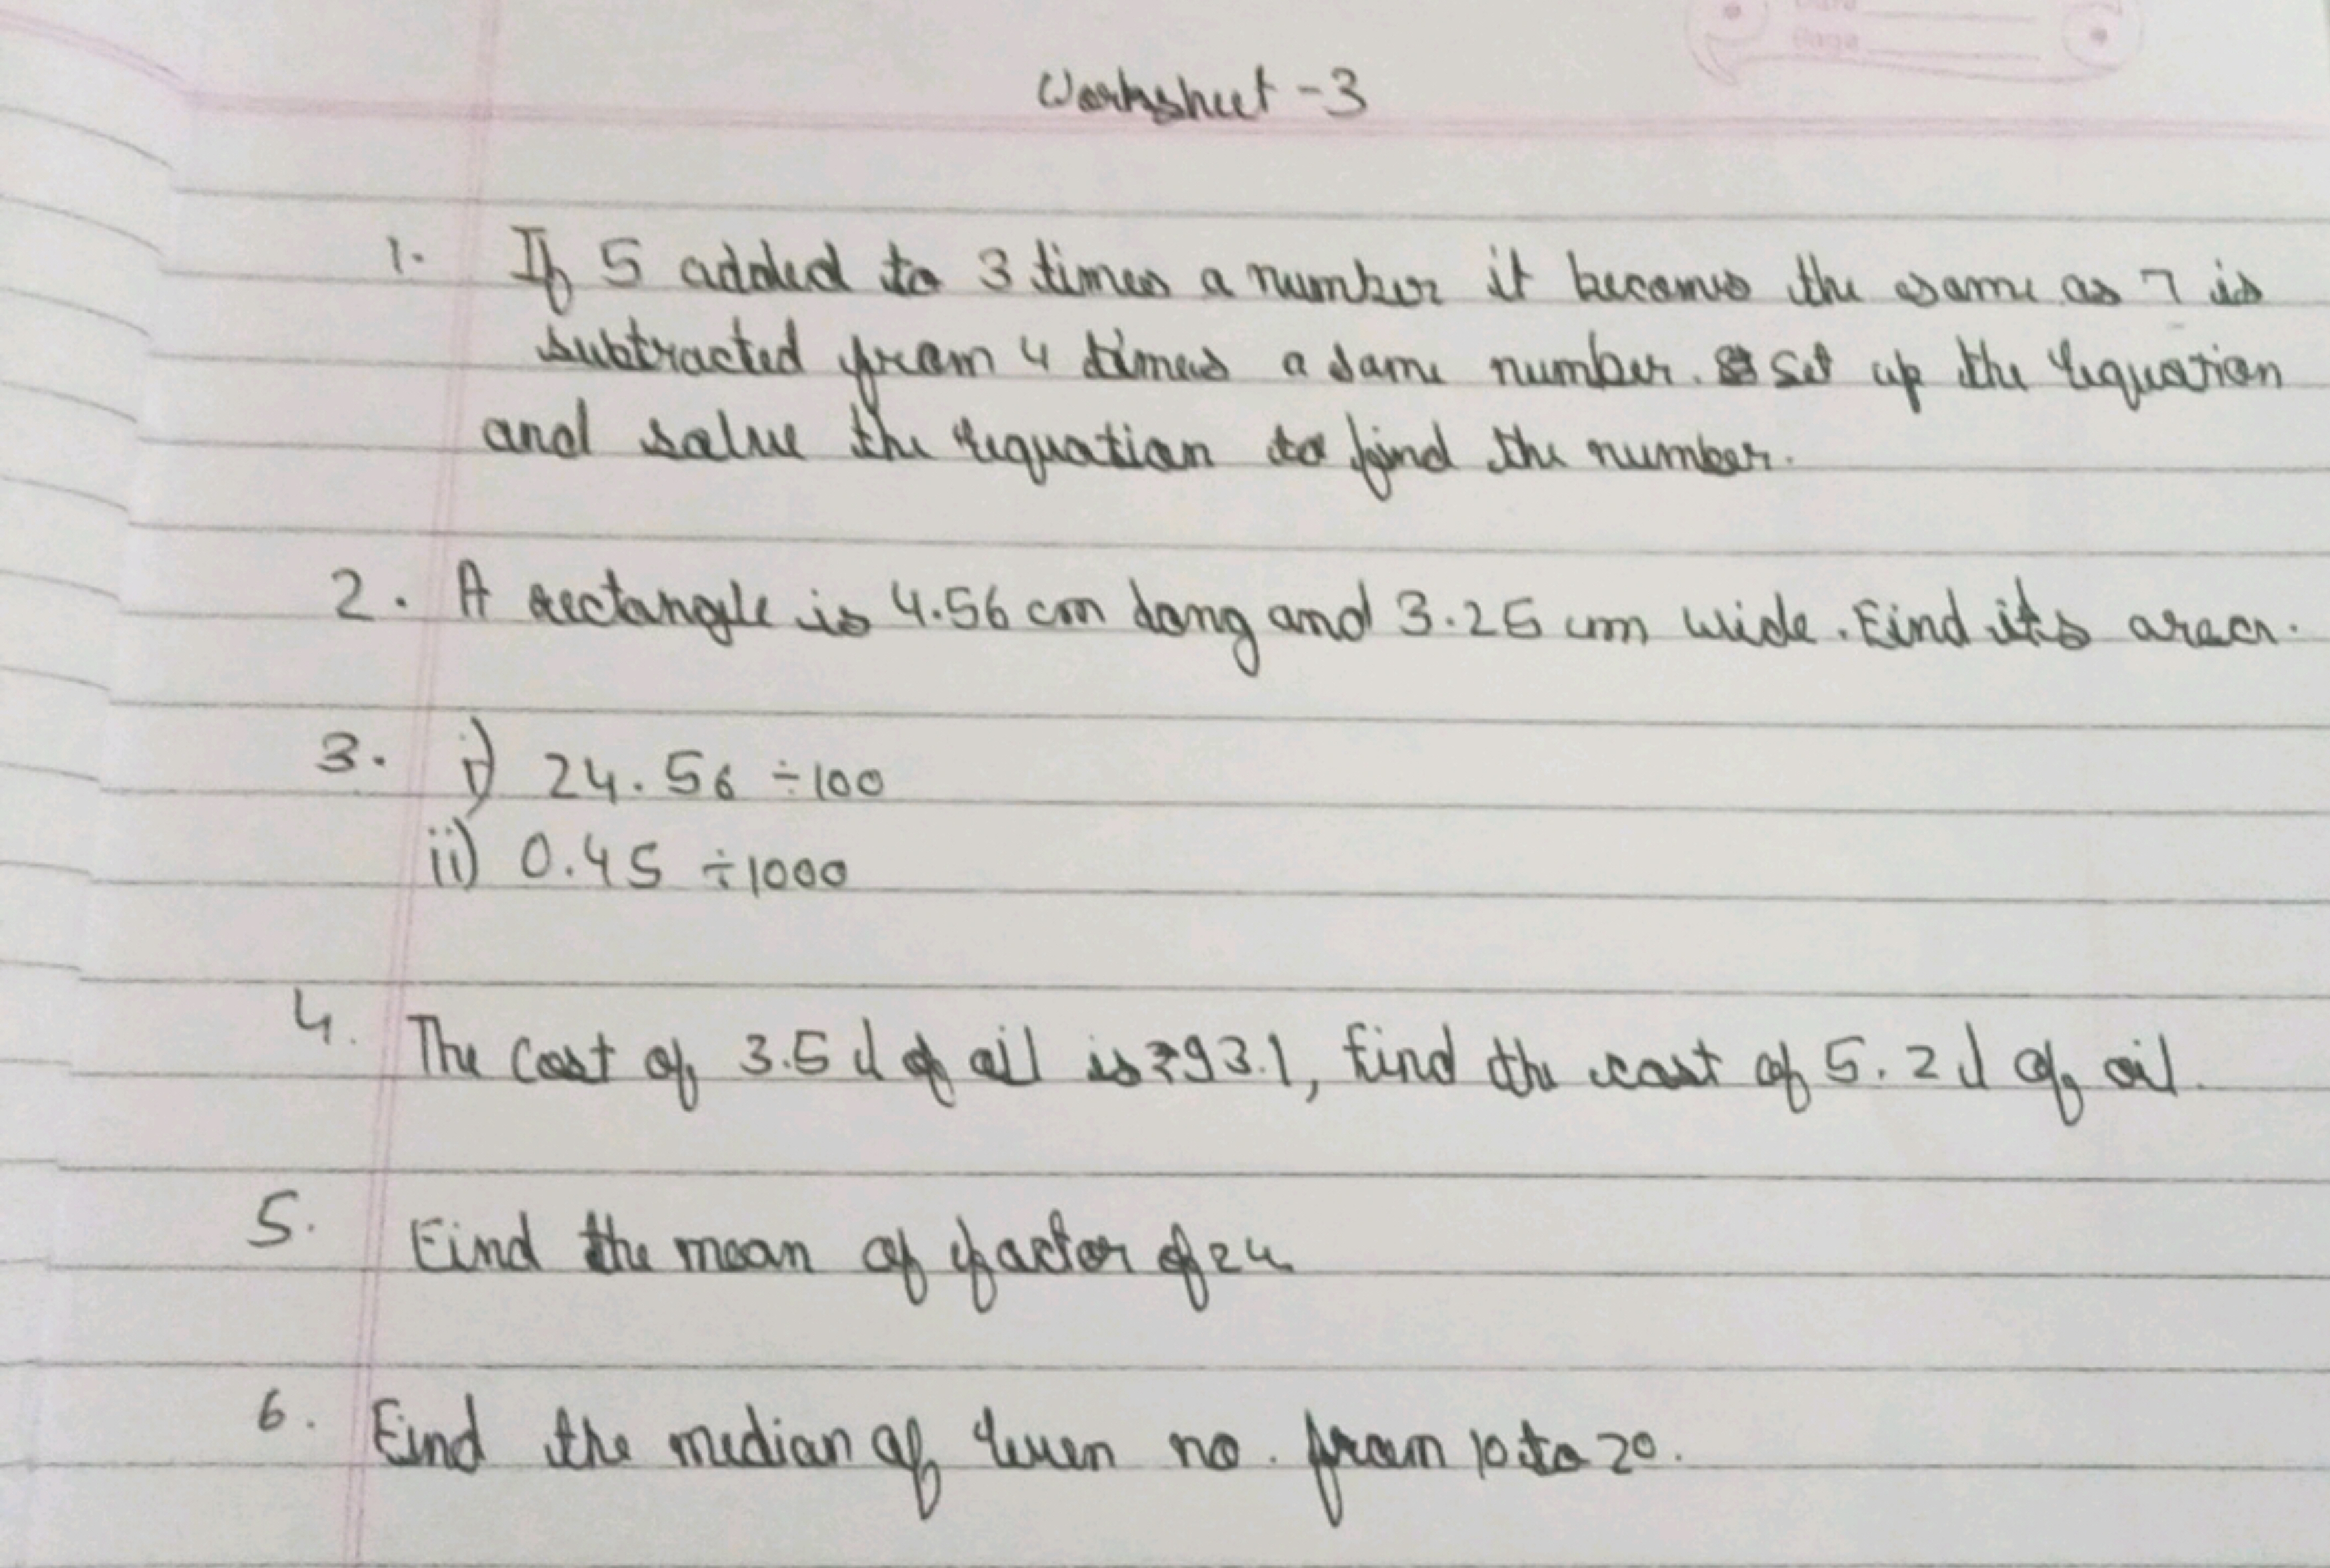 Date
Page
Worksheet - 3
1. If 5 added to 3 times a number it becomes the same as 7 is
subtracted from 4 times a same number. Set up the equation
and solve the equation to find the number.
2. A rectangle is 4.56 cm long and 3.25 cm wide. Find its area.
3. i) 24.56 ÷ 100
ii) 0.45 ÷ 1000
4. The cost of 3.5 l of oil is ₹93.1, find the cost of 5.2 l of oil.
5. Find the mean of factor of 24
6. Find the median of even no. from 10 to 20.